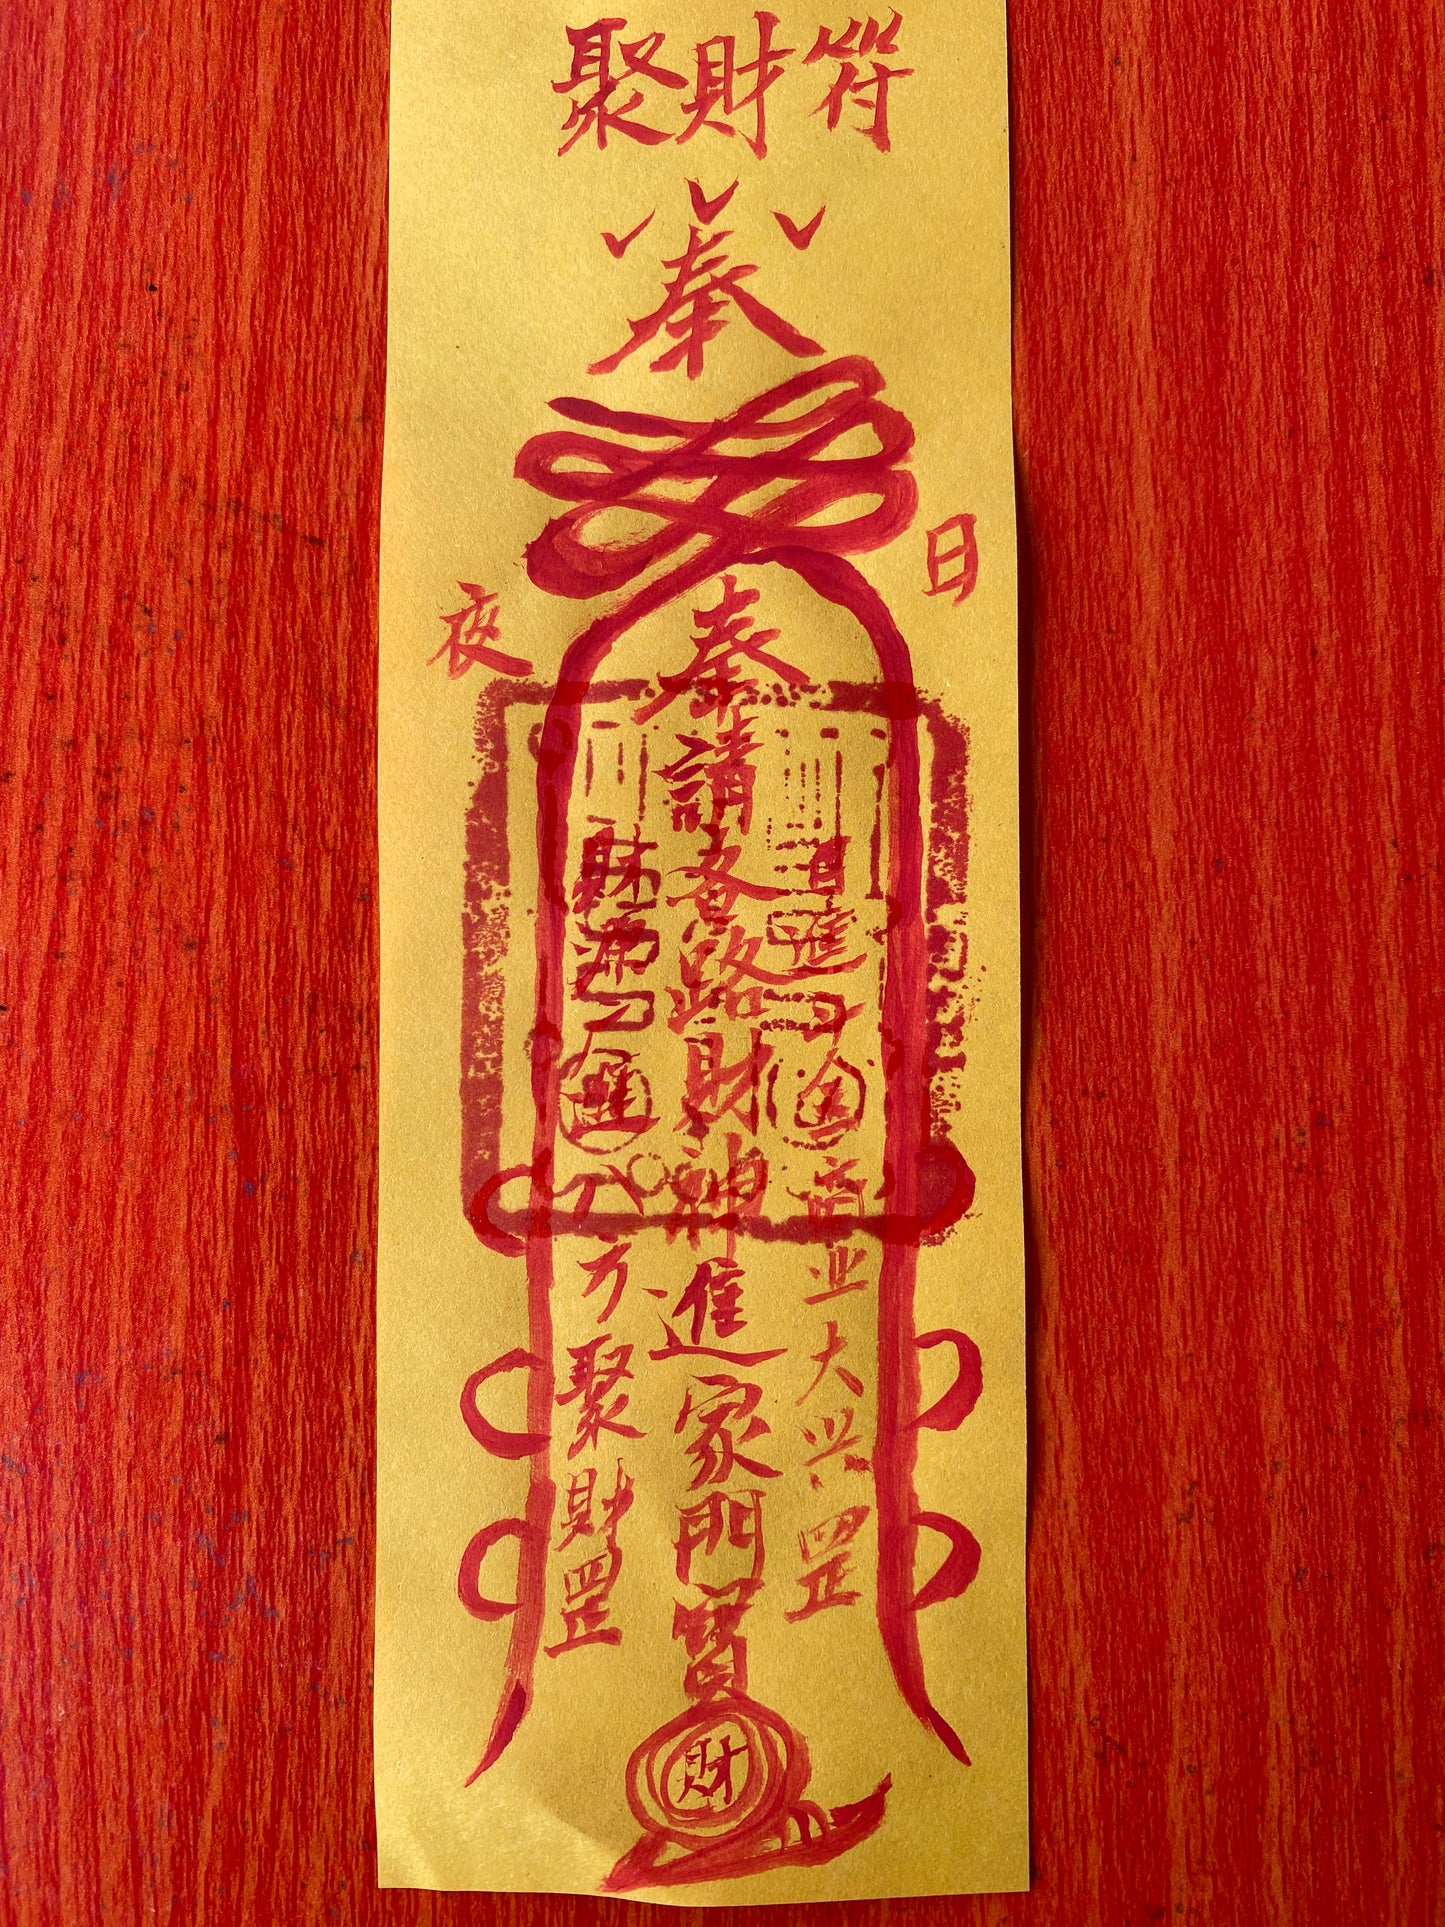 聚財符
奉
日
夜
奉請各路財神進家門寶
日進
金商业大兴罡
財源
進八方聚財罡
財